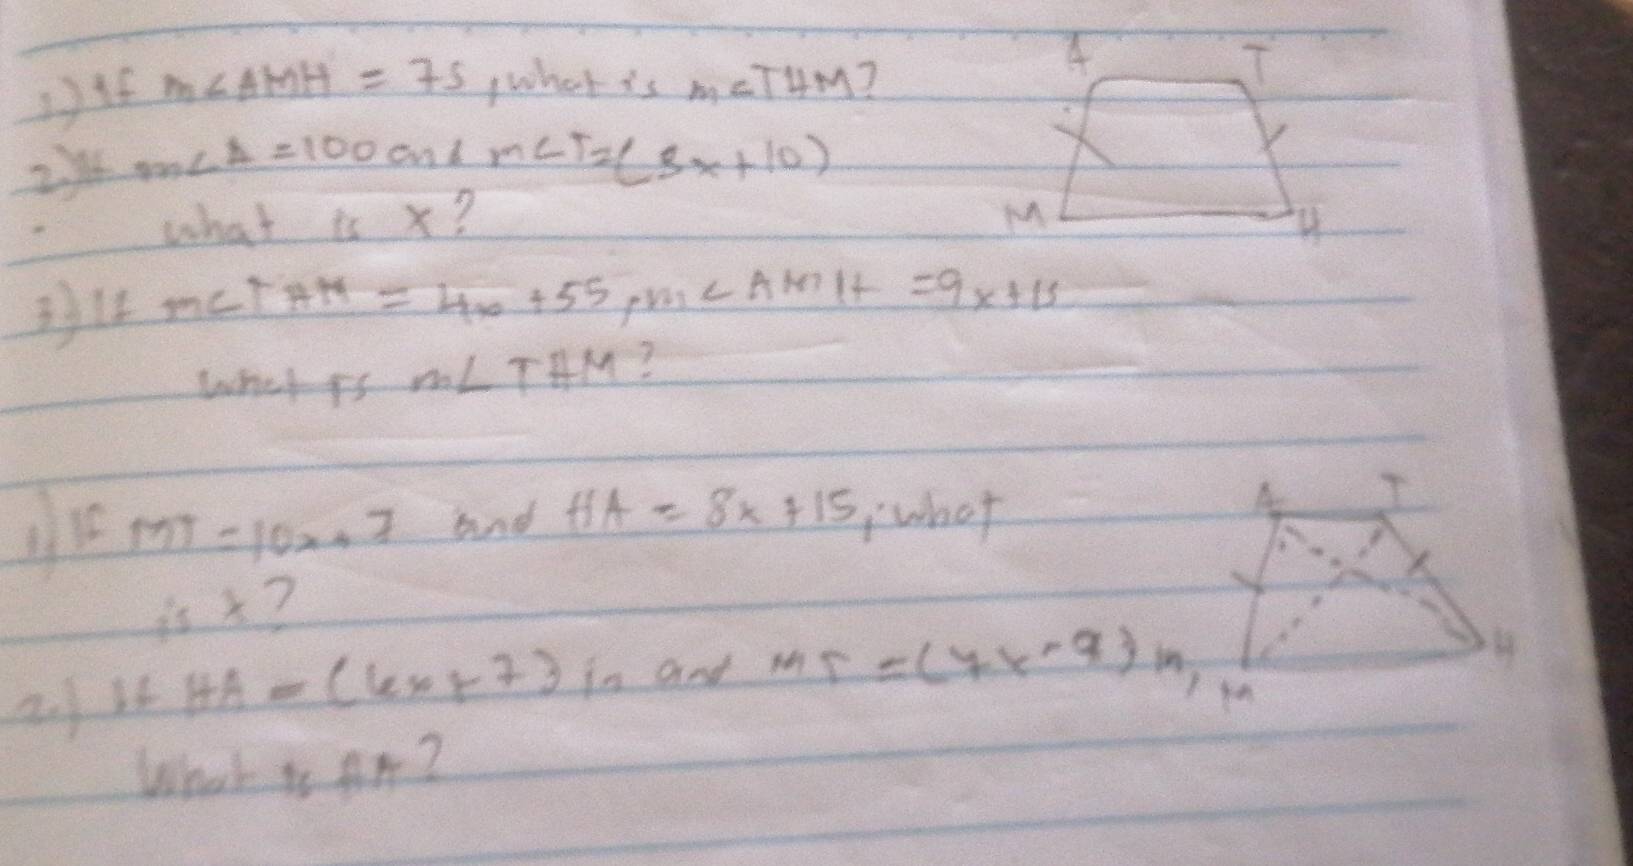 1.) If m<AMH = 75, what is m<THM?
A T
2.) If m<A = 100 and m<T = (3x+10)
what is x?
M H
3.) If m<TAM = 4x +55, m<AMH = 9x+15
What is m∠TAM?
1.) If MT = 10x+7 and HA = 8x+15, what
A T
is x?
2.) If HA = (6x+7) in and MT = (7x-9) in,
M H
What is HA?